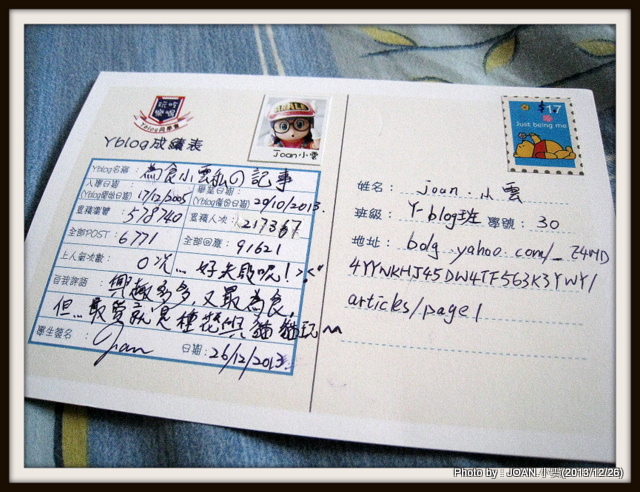 Yblog同學會
Yblog成績表
ARALE
Joan小雲
Yblog名稱: 為食小雲私の記事
入學日期: 畢業日期:
(Yblog開份日期) 17/12/2005 (Yblog關份日期) 29/10/2013.
累積瀏覽: 578740 累積人次: 217367
全部POST: 6771 全部回應: 91621
上人氣次數: 0次... 好失敗呢! >.<"
自我評語: 興趣多多,又最為食,
但... 最愛就是種花與貓貓玩~~
學生簽名: Joan 日期: 26/12/2013.
$17
Just being me
姓名: joan.小雲
班級: Y-blog班 學號: 30
地址: bolg.yahoo.com/_Z4MD
4YYNKHJ45DW4TF563K3YWY/
articles/page1
Photo by : JOAN.小雲(2013/12/26)